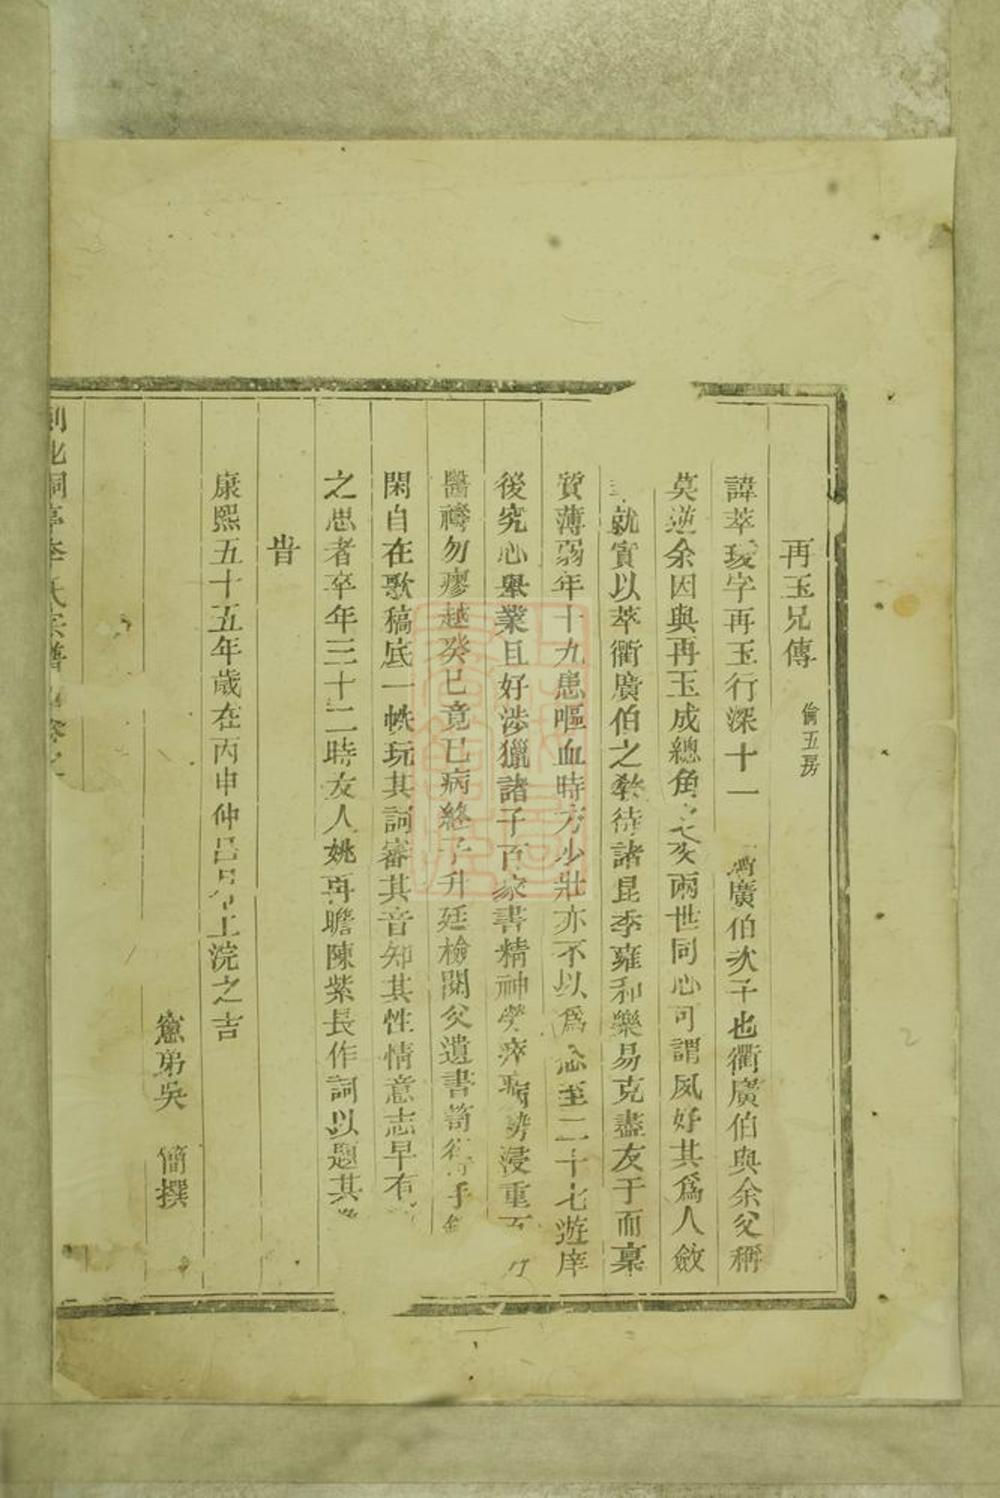 再玉兄傳 倫五房
諱萃瑷字再玉行深十一 衢廣伯次子也衢廣伯與余父稱
莫逆余因與再玉成總角之交兩世同心可謂夙好其爲人斂
華就實以萃衢廣伯之教待諸昆季雍和樂易克盡友于而稟
質薄弱年十九患嘔血時方少壯亦不以爲念至二十七遊庠
後究心舉業且好涉獵諸子百家書精神勞瘁病勢浸重百
醫禱勿瘳越癸巳竟已病終子升廷檢閱父遺書笥得手
閑自在歌稿底一帙玩其詞審其音知其性情意志早有
之思者卒年三十二時友人姚再瞻陳紫長作詞以題其
旹
康熙五十五年歲在丙申仲呂月上浣之吉
窻弟吳 簡撰
剡北 李氏宗譜